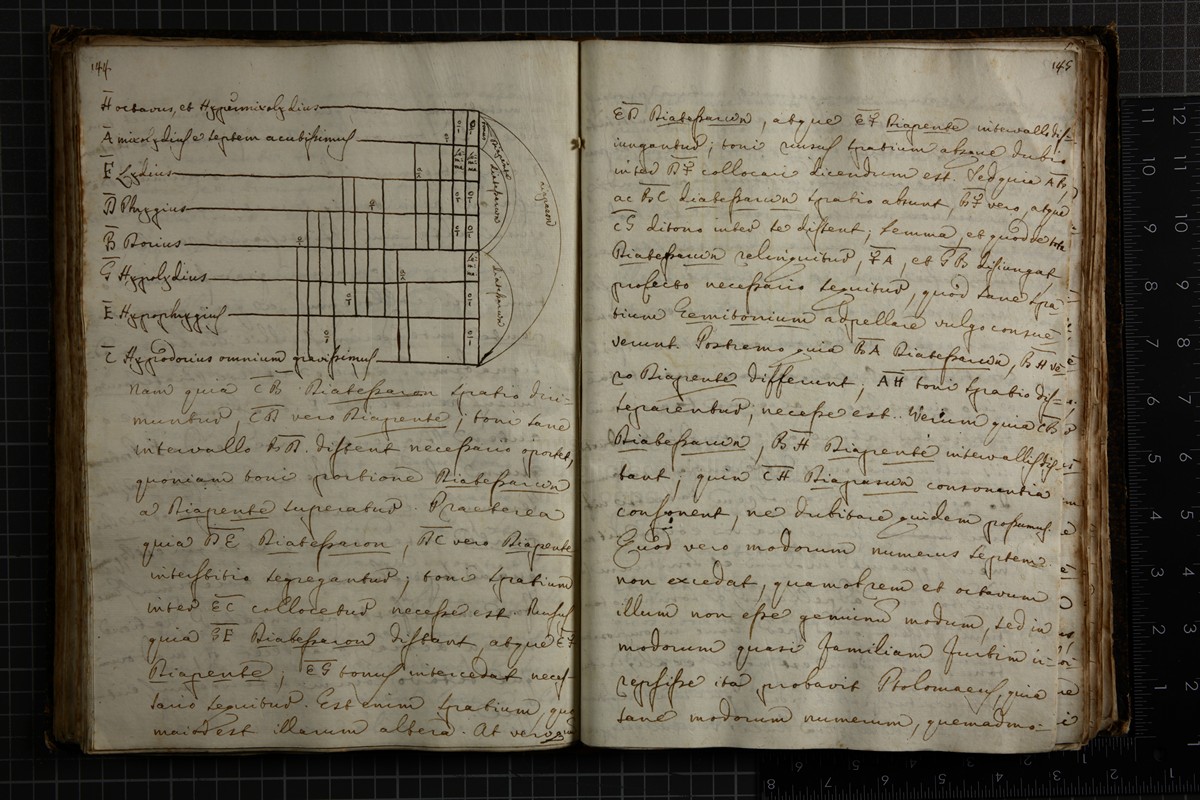 144.
H octavus, et Hypermixolydius
A mixolydius e septem acutissimus
F Lydius
D Phrygius
B Dorius
G Hypolydius
E Hypophrygius
C Hypodorius omnium gravissimus
diatessaron
diapason
diatessaron
nam quia CB Diatessaron spatio diri-
muntur, CD vero Diapente; toni sane
intervallo BD distent necessario oportet,
quoniam toni portione Diatessaron
a Diapente superatur. Praeterea
quia DE Diatessaron, DC vero Diapente
interstitio segregantur; toni spatium
inter EC collocetur necesse est. Rursus
quia Diatessaron distant, atque
Diapente, EG tonus intercedat neces-
sario sequitur. Est enim spatium, quo
maior est illarum altera. At vero quia
145
ED Diatessaron, atque EF Diapente intervallo dis-
iunguntur; toni rursus spatium absque dubio
inter DF collocari dicendum est. Sed quia AD,
ac BC diatessaron spatio absunt, DF vero, atque
CG ditono inter se distent; Lemma, et quod de tota
Diatessaron relinquitur, FA, et GB disiungat
profecto necessario sequitur, quod sane spa-
tium Semitonium adpellare vulgo consue-
verunt. Postremo quia DA Diatessaron, DH ve-
ro Diapente differunt; AH toni spatio dis-
separentur, necesse est. Verum quia CB
Diatessaron, BH Diapente intervallis dis-
tant; quin CH Diapason consonantia
consonent, ne dubitare quidem possumus.
Quod vero modorum numerus septem
non excedat, quamobrem et octavum
illum non esse genuinum modum, sed in
modorum quasi familiam furtim ir-
repsisse ita probavit Ptolomaeus, quia
sane modorum numerum, quemadmo-